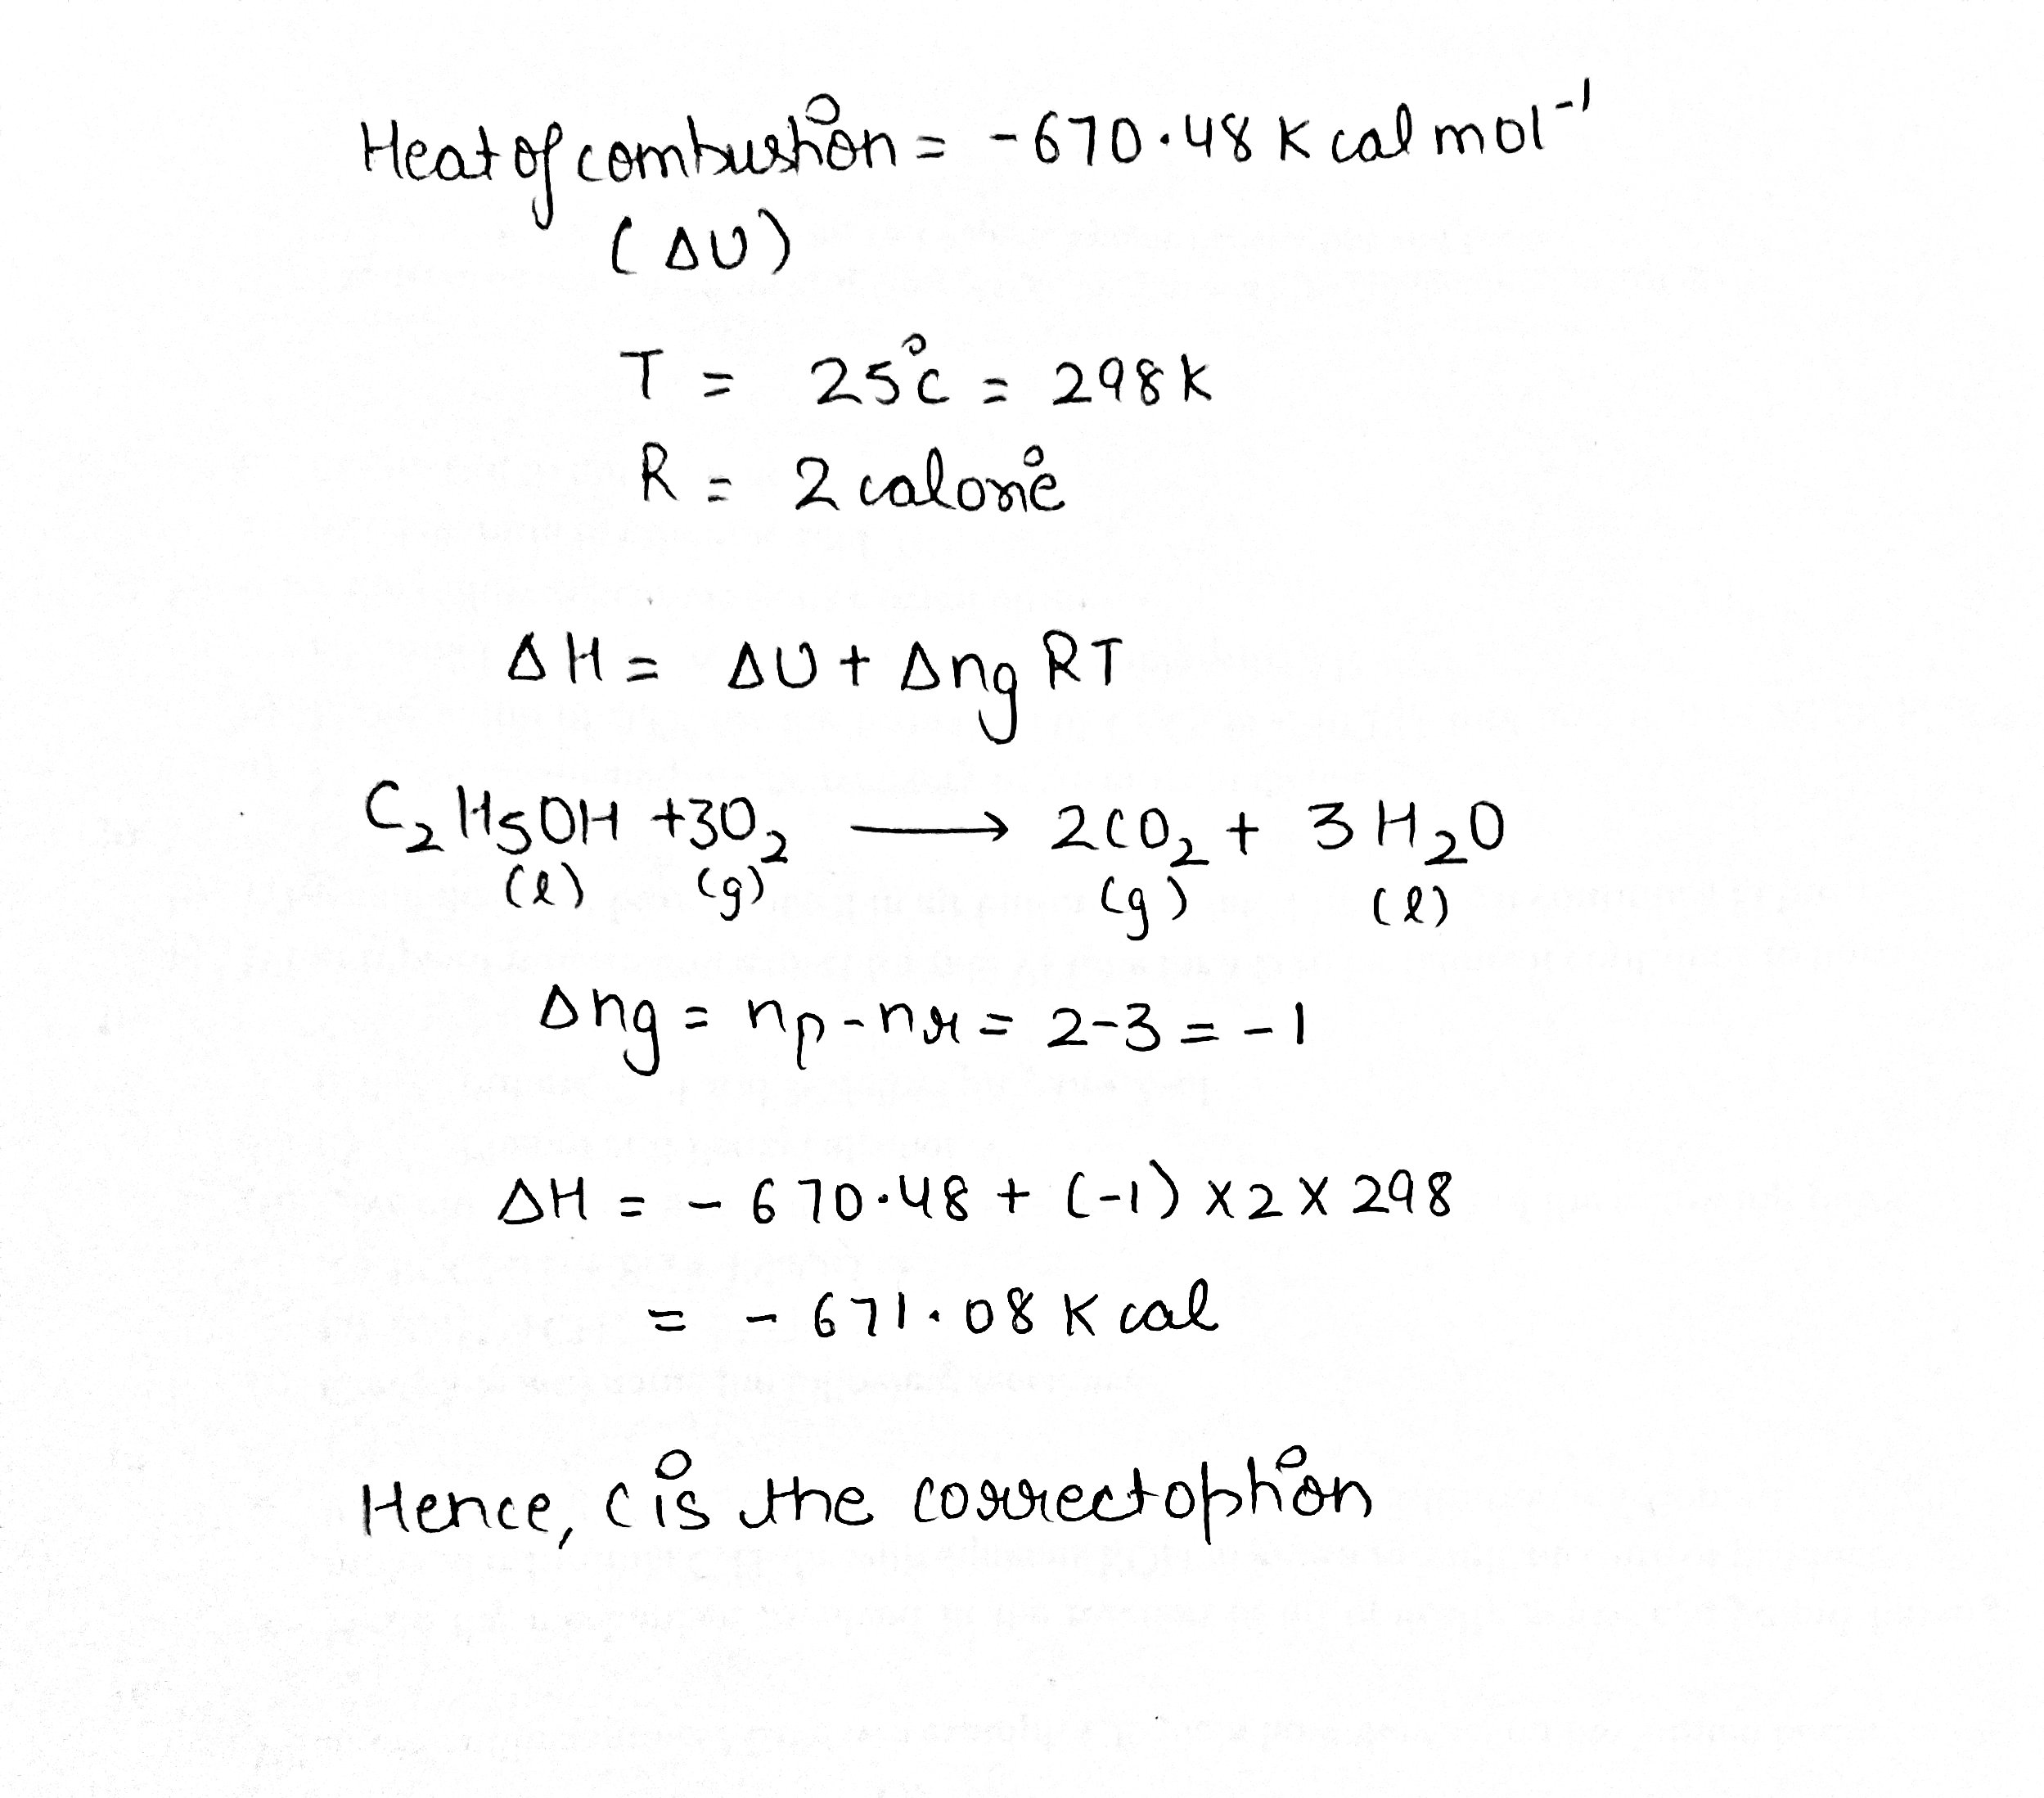 Heat of combustion = -670.48 K cal mol⁻¹
(ΔU)
T = 25°C = 298K
R = 2 calorie
ΔH = ΔU + Δng RT
C₂H₅OH + 3O₂ ⟶ 2CO₂ + 3H₂O
(l) (g) (g) (l)
Δng = np - nr = 2-3 = -1
ΔH = - 670.48 + (-1) × 2 × 298
= - 671.08 K cal
Hence, c is the correct option